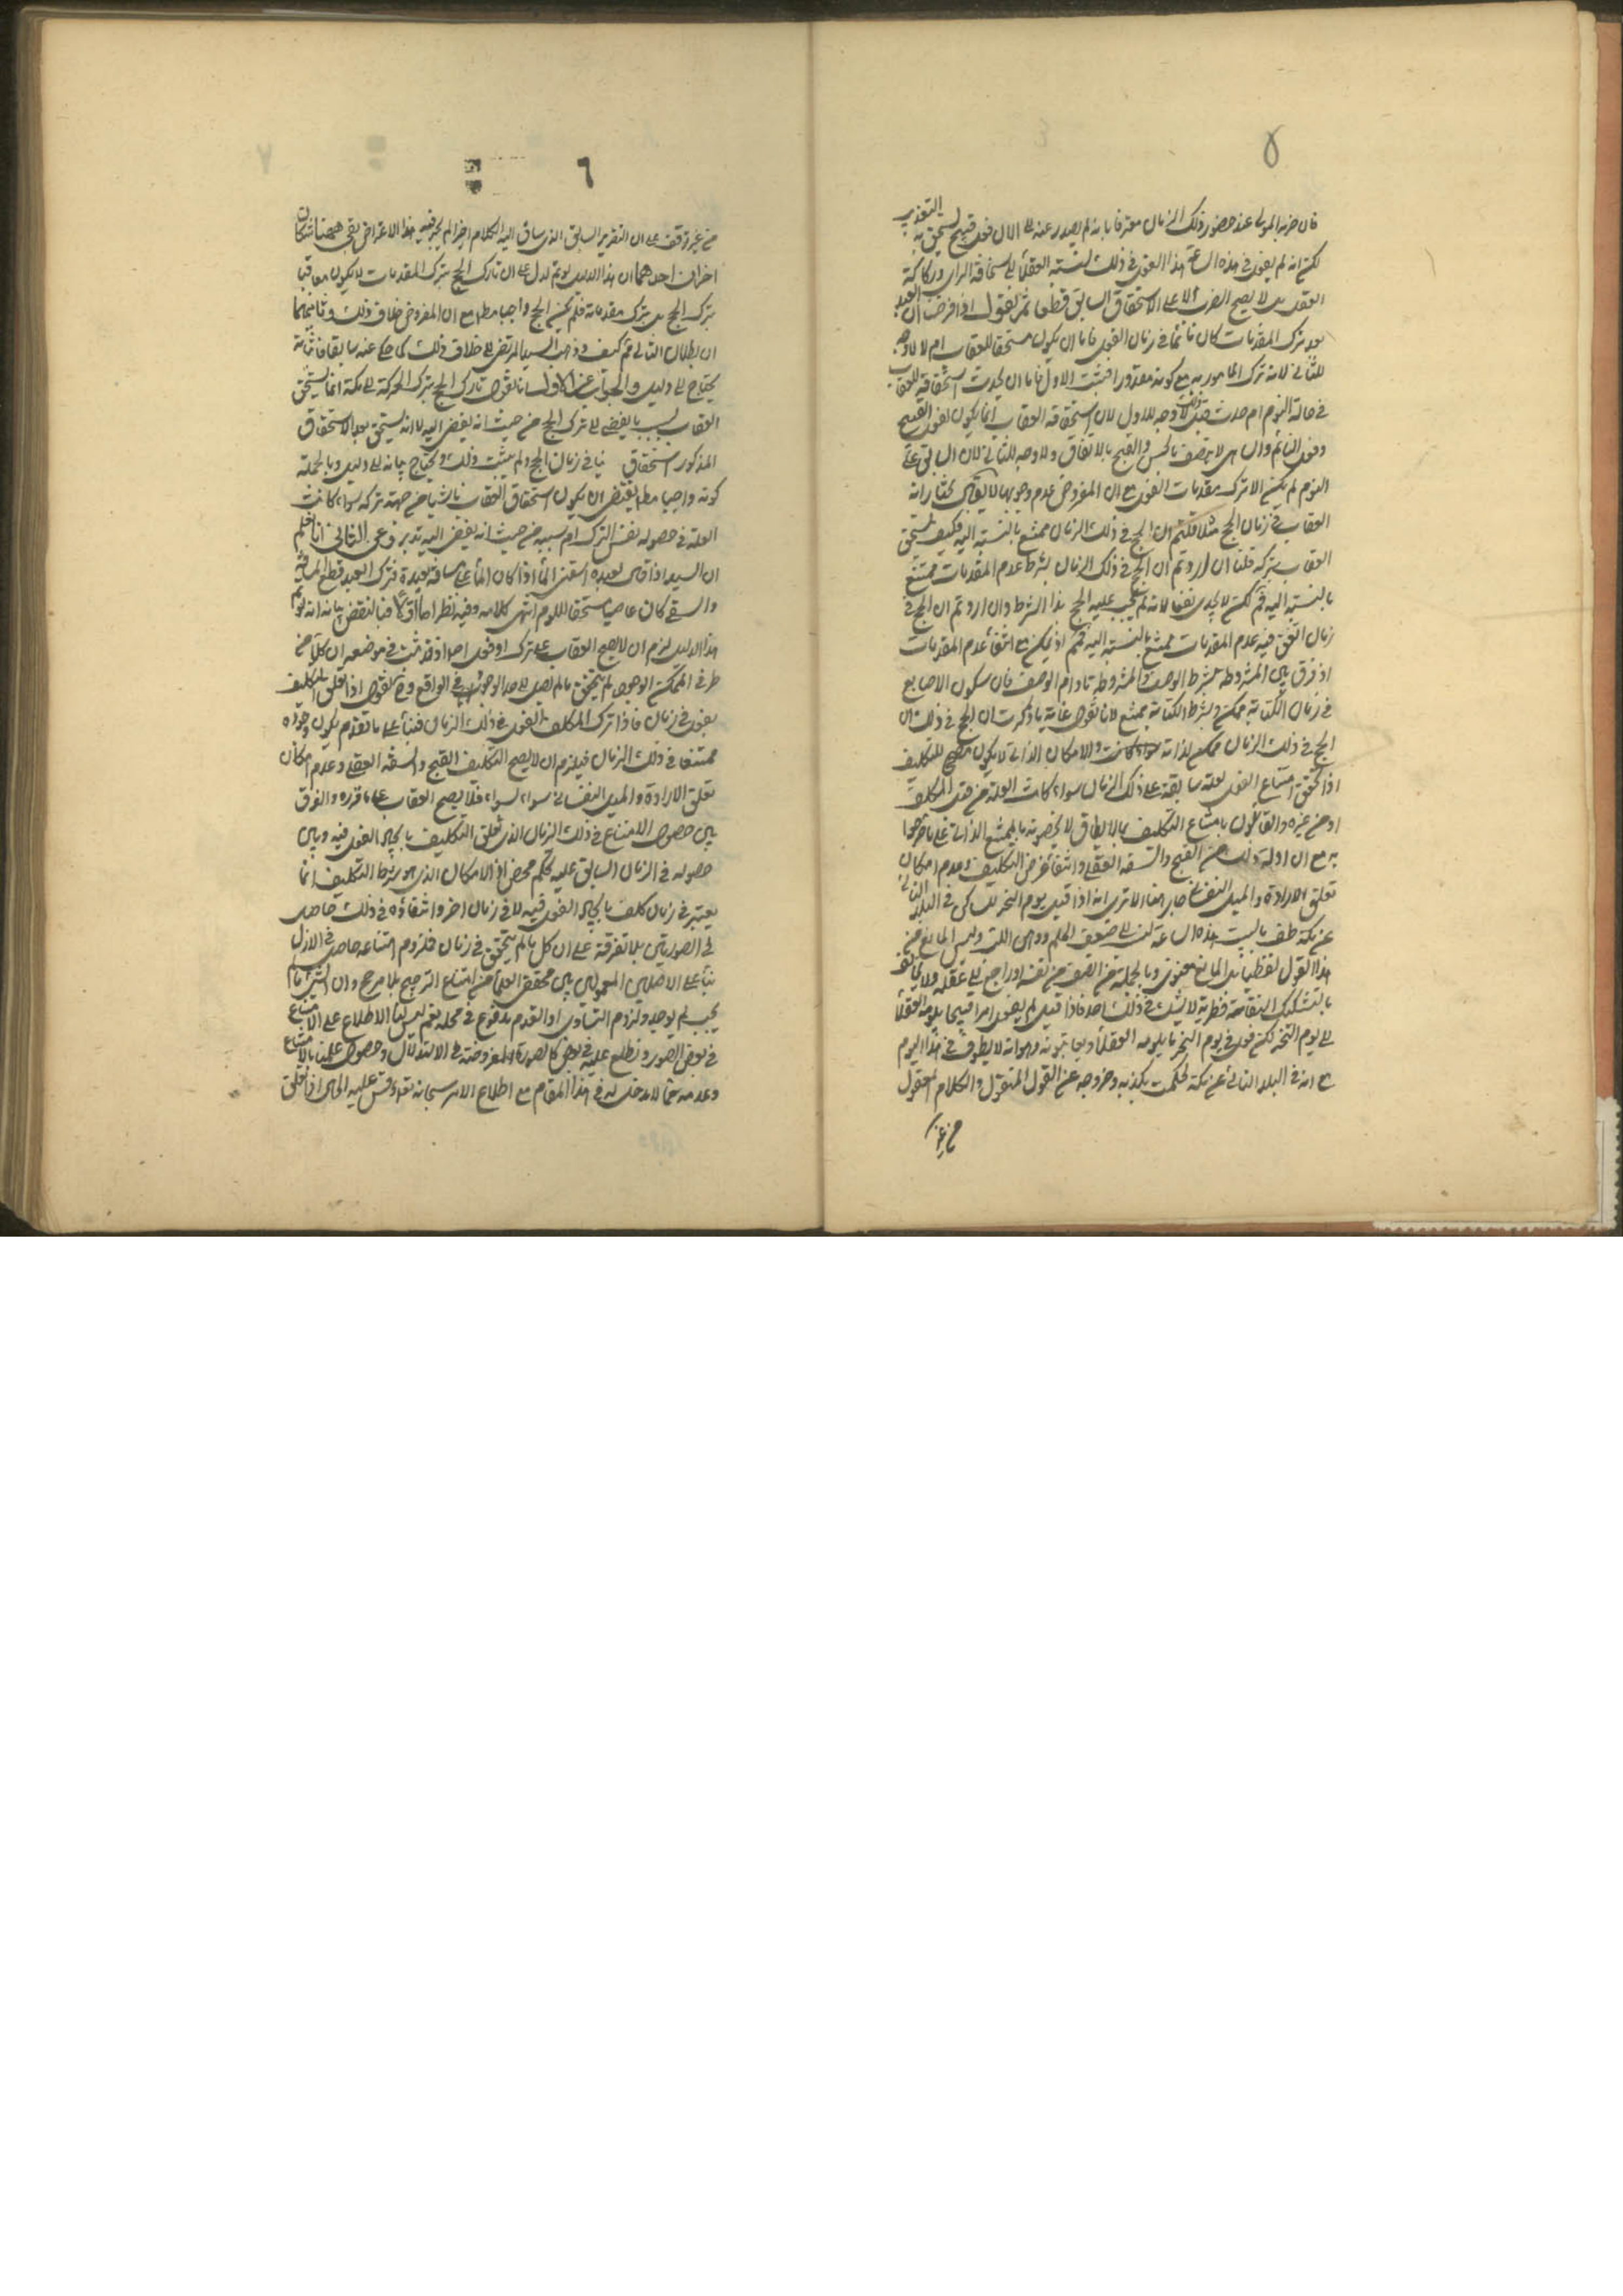 ۵
فان ضربه المولى عند حضور ذلك الزمان معترفا بانه لم يصدر عنه الى الان فعل قبيح يستحق به التعذير
لكنه لم يفعل في هذه الساعة هذا الفعل في ذلك لنسبته العقلاء الى سخافة الراى وركاكة
العقل بل لا يصح الضرب الا على الاستحقاق السابق قطعا ثم نقول اذا فرضنا ان العبد
بعد ترك المقدمات كان نائما في زمان الفعل فاما ان يكون مستحقا للعقاب ام لا لا وجه
للثاني لانه ترك المامور به مع كونه مقدورا فثبت الاول فاما ان يحدث استحقاقه للعقاب
في حالة النوم ام حدث قبل ذلك لا وجه للاول لان استحقاقه العقاب انما يكون لفعل القبيح
وفعل النائم والساهى لا يتصف بالحسن والقبح بالاتفاق ولا وجه للثاني لان السابق على
النوم لم يكن الا ترك مقدمات الفعل مع ان المفروض عدم وجوبها لا يقال نختار انه
العقاب في زمان الحج مثلا قلتم ان الحج في ذلك الزمان ممتنع بالنسبة اليه فكيف يستحق
العقاب بتركه قلنا ان اردتم ان الحج في ذلك الزمان بشرط عدم المقدمات ممتنع
بالنسبة اليه فثم لكن لا يجدى نفعا لانه لم يجب عليه الحج بهذا الشرط وان اردتم ان الحج في
زمان اتفق فيه عدم المقدمات ممتنع بالنسبة اليه فثم اذ يمكن مع انتفاء عدم المقدمات
اذ فرق بين المشروطة بشرط الوصف والمشروطة مادام الوصف فان سكون الاصابع
في زمان الكتابة ممكن وبشرط الكتابة ممتنع لانا نقول غاية ما ذكرت ان الحج في ذلك
الحج في ذلك الزمان ممكن لذاته والامكان الذاتى لا يكون مصحح للتكليف
اذا تحقق امتناع الفعل لعلة سابقة على ذلك الزمان سواء كانت العلة من قبل المكلف
او من غيره والقائلون بامتناع التكليف بما لا يطاق لا يخصونه بالممتنع الذاتى على ما صرحوا
به مع ان ادلة ذلك من القبح والسفه العقلى وانتفاء غرض التكليف وعدم امكان
تعلق الارادة والميل النفسانى جار هنا الا ترى انه اذا قيل يوم النحر لمن كان في البلد النائى
عن مكة طف بالبيت هذه الساعة نسب الى ضعف الحلم ووهن اللب وليس المانع من
هذا القول لفظيا بل المانع معنوى وبالجملة من انصف من نفسه وراجع الى عقله ولا
بالتشكيك فظرية لا يشك في ذلك احد فاذا قيل لم يفعل امرا قبيحا يلومه العقلاء
الى يوم النحر لكن فعل في يوم النحر ما يلومه العقلاء ويعاتبونه وهو انه لا يطوف في هذا اليوم
مع انه في البلد النائى عن مكة لحكمت بكذبه وخروجه عن القول المنقول والكلام المعقول
من غير
٦
من غير وقف على ان التقرير السابق الذى ساق اليه الكلام اخيرا لم يجر فيه هذا الاعتراض بقى ههنا اشكالان
اخران احدهما ان هذا الدليل لو تم لدل على ان تارك الحج بترك المقدمات لا يكون معاقبا
بترك الحج بل بترك مقدماته فلم يكن الحج واجبا مطلقا مع ان المفروض خلاف ذلك وثانيهما
ان بطلان التالى ثم كيف وذهب السيد المرتضى الى خلاف ذلك كما حكى عنه سابقا فاثباته
يحتاج الى دليل والجواب عن الاول انا نقول تارك الحج بترك الحركة الى مكة انما يستحق
العقاب بسبب ما يفضى الى ترك الحج من حيث انه يفضى اليه لا انه يستحق بعد الاستحقاق
المذكور استحقاق نيا في زمان الحج ولم يثبت ذلك ويحتاج بيانه الى دليل وبالجملة
كونه واجبا مطلقا يقتضى ان يكون استحقاق العقاب ناشيا من جهة تركه سواء كانت
العلة في حصوله نفس الترك ام سببه من حيث انه يفضى اليه تدبر وعن الثانى انا نعلم
ان السيد اذا قال لعبده اسقنى الماء اذا كان الماء على مسافة بعيدة فترك العبد قطع المسافة
والسقى كان عاصيا مستحقا للوم انتهى كلامه وفيه نظر اما اولا فبالنقض بيانه انه لو تم
هذا الدليل لزم ان لا يصح العقاب على ترك او فعل اصلا اذ قد ثبت في موضعه ان كلا من
طرفى الممكن الوجود لم يتحقق ما لم يصل الى حد الوجوب في الواقع وح نقول اذا تعلق التكليف
بفعل في زمان فاذا ترك المكلف الفعل في ذلك الزمان فبناء على ما تقدم يكون وجوده
ممتنعا في ذلك الزمان فيلزم ان لا يصح التكليف للقبح والسفه العقلى وعدم امكان
تعلق الارادة والميل النفسانى سواء بسواء فلا يصح العقاب على ما قرره والفرق
بين حصول الامتناع في ذلك الزمان الذى تعلق التكليف بايجاد الفعل فيه وبين
حصوله في الزمان السابق عليه تحكم محض اذ الامكان الذى هو شرط التكليف انما
يعتبر في زمان كلف بايجاد الفعل فيه لا في زمان اخر وانتفاؤه في ذلك حاصل
في الصورتين بلا تفرقة على ان كل ما لم يتحقق في زمان فلزوم امتناعه حاصل في الازل
بناء على الاصلين المعمولين بين محققى العلماء من امتناع الترجيح بلا مرجح وان الشئ ما لم
يجب لم يوجد ولزوم التساوى او القدم مدفوع في محله نعم ليس لنا الاطلاع على الامتناع
في بعض الصور ونطلع عليه في بعض كالصورة المفروضة في الاستدلال وحصول علمنا بالامتناع
وعدمه مما لا مدخل له في هذا المقام مع اطلاع الامر سبحانه